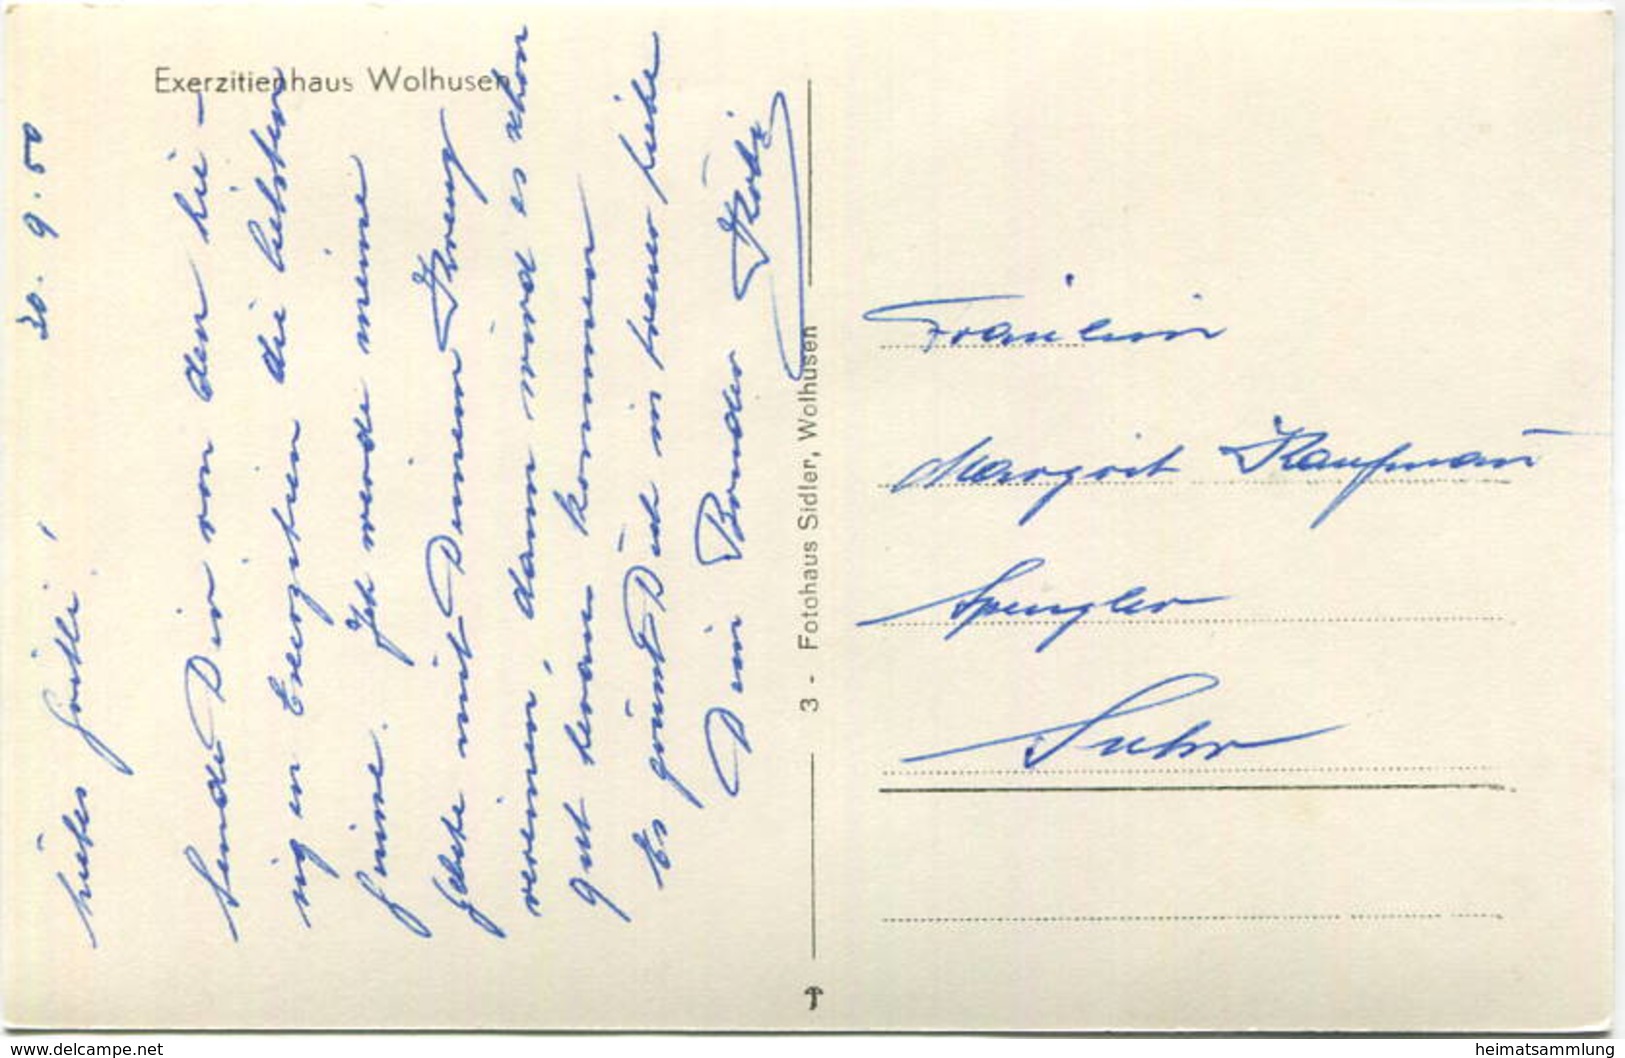 Exerzitienhaus Wolhusen
30. 9. 50
Liebes Gritli!
Sende Dir von den hei-
ligen Exerzitien die liebsten
Grüsse. Ich werde meine
Gebete mit Deinem Kreuz
vereinen, dann wird es schon
gut heraus kommen
Es grüsst Dich in treuer Liebe
Dein Bruder
3 - Fotohaus Sidler, Wolhusen
Fräulein
Margrit Kaufmann
Spengler
Suhr
www.delcampe.net
heimatsammlung